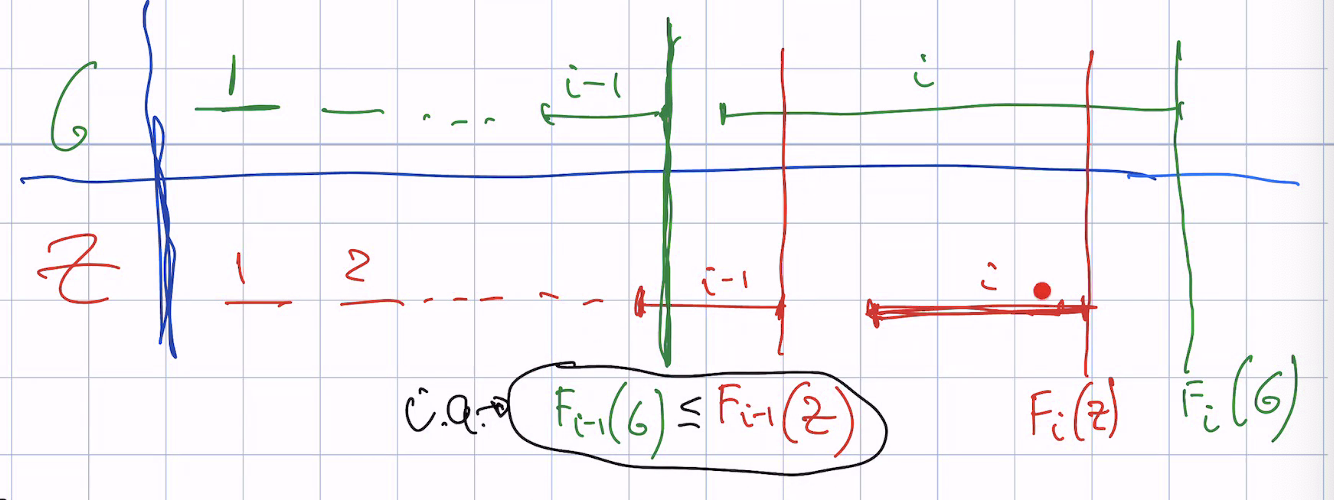 G 1 ... i-1 i
Z 1 2 i-1 i
i.a. → F_{i-1}(G) ≤ F_{i-1}(Z) F_i(Z) F_i(G)